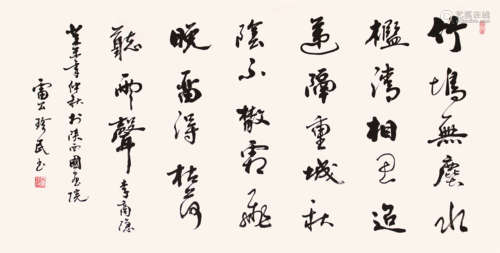 竹塢無塵水
檻清相思迢
遞隔重城秋
陰不散霜飛
晚留得枯荷
聽雨聲 李商隱
癸未年仲秋於陝西國畫院
雷公珍民書